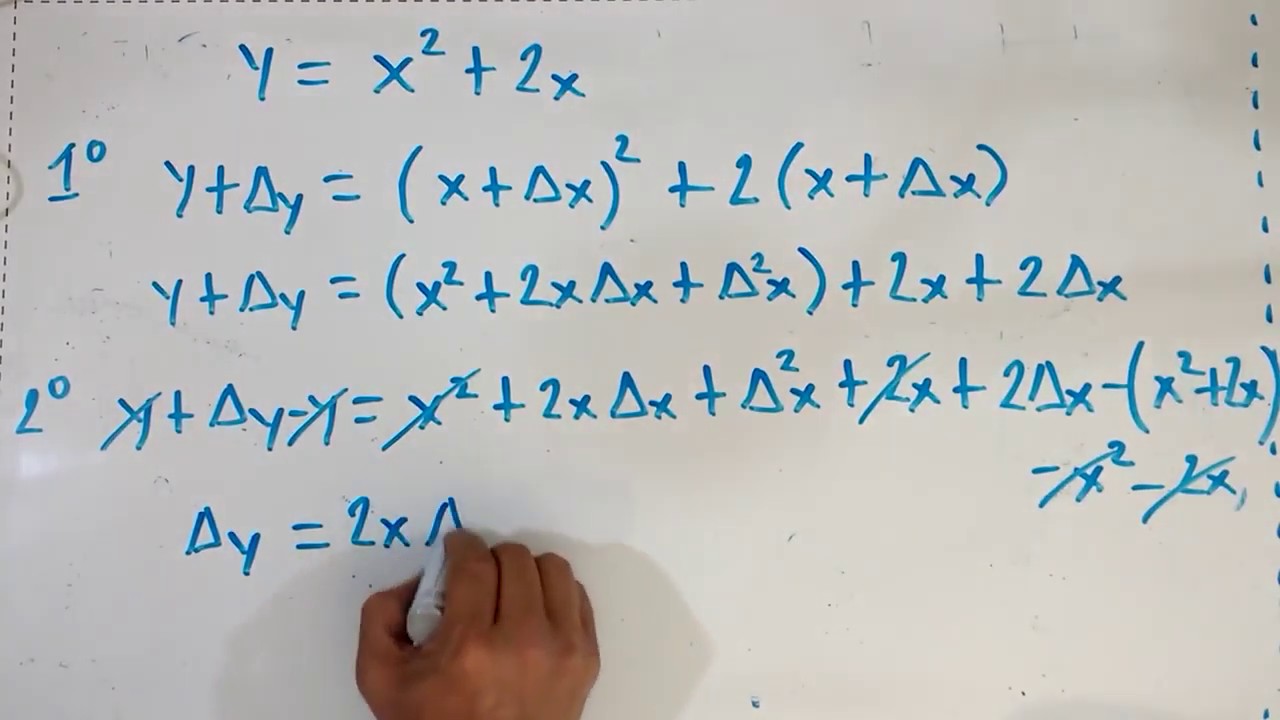 y = x² + 2x
1° y + Δy = (x + Δx)² + 2(x + Δx)
y + Δy = (x² + 2xΔx + Δ²x) + 2x + 2Δx
2° y + Δy - y = x² + 2xΔx + Δ²x + 2x + 2Δx - (x² + 2x)
- x² - 2x,
Δy = 2xΔ